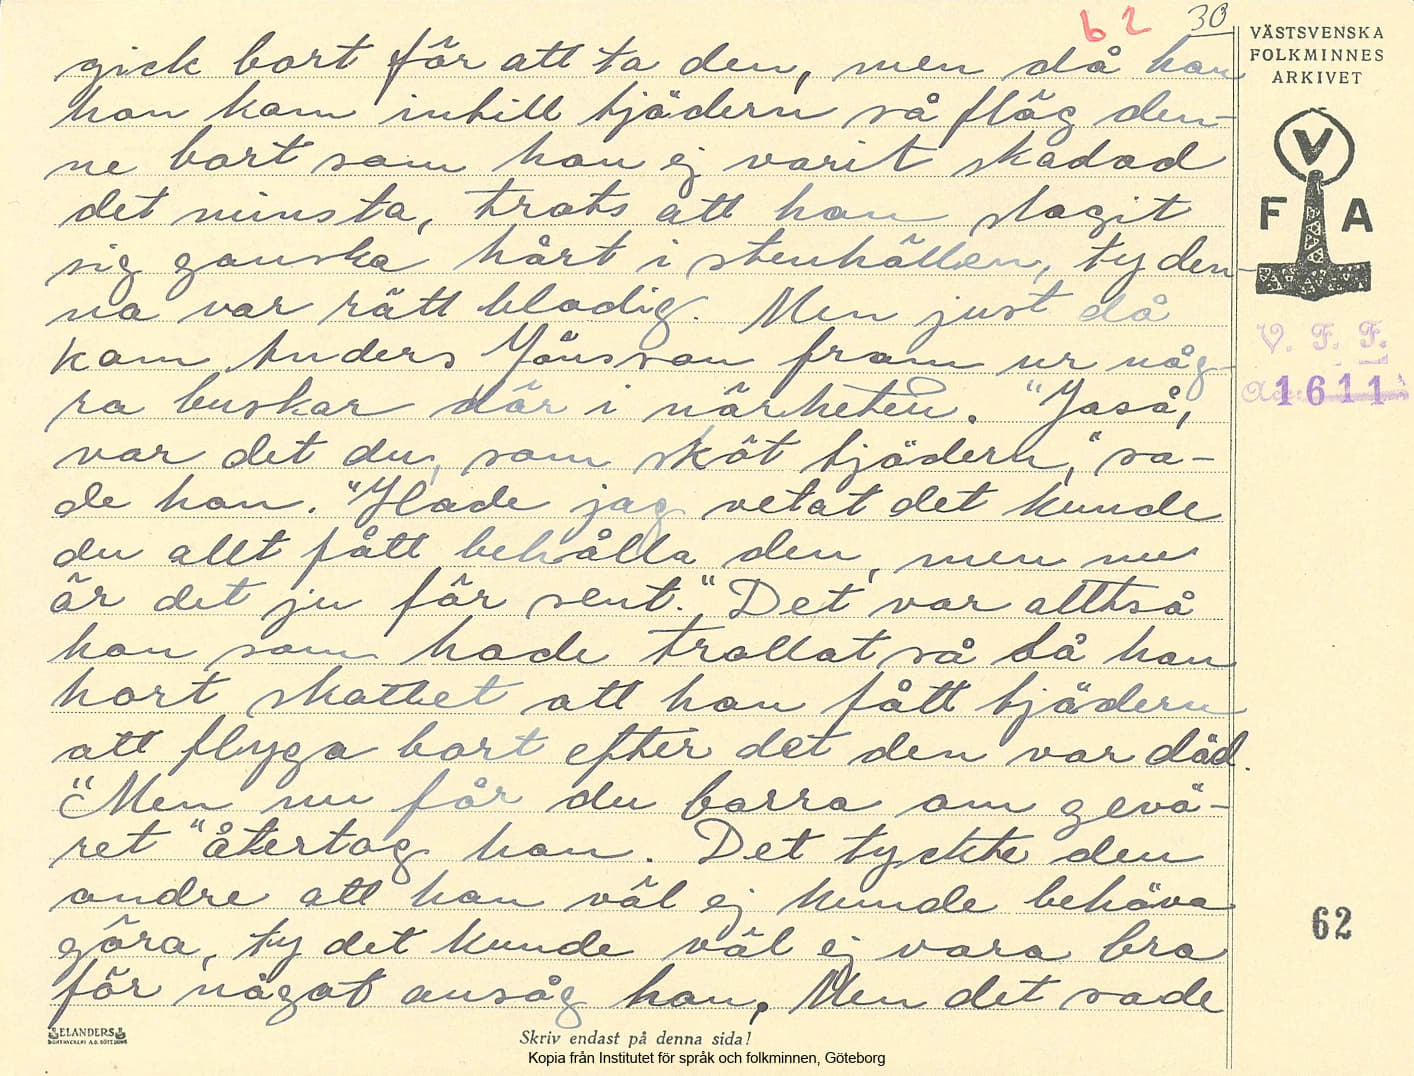 62 30
VÄSTSVENSKA
FOLKMINNES
ARKIVET
V
F A
V. F. F.
Acc. 1611
gick bort för att ta den, men då han
han kam intill tjädern så flög den-
ne bort som han ej varit skadad
det minsta, trots att han slagit
sig ganska hårt i stenhällen, ty den-
na var rätt blodig. Men just då
kom Anders Jönsson fram ur någ-
ra buskar där i närheten. "Jaså,
var det du, som sköt tjädern," sa-
de han. "Hade jag vetat det kunde
du allt fått behålla den, men nu
är det ju för sent." Det var alltså
han som hade trollat så då han
hört skottet att han fått tjädern
att flyga bort efter det den var död.
"Men nu får du borra om gevä-
ret" återtog han. Det tyckte den
andre att han väl ej kunde behöva
göra, ty det kunde väl ej vara bra
för något ansåg han. Men det sade
62
ELANDERS
BOKTRYCKERI A.B. GÖTEBORG
Skriv endast på denna sida!
Kopia från Institutet för språk och folkminnen, Göteborg